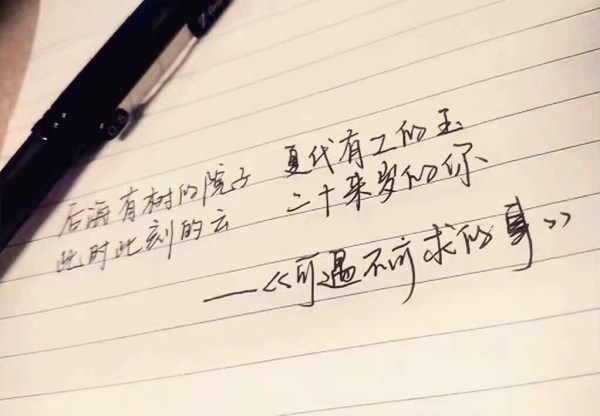 后海有树的院子 夏代有工的玉
此时此刻的云 二十来岁的你
——《可遇不可求的事》